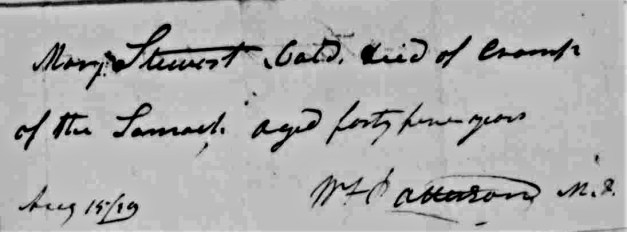 Mary Stewert Cold. died of Cramp
of the Stomach aged forty seven years
Aug 15/19 Wm Patterson M.D.